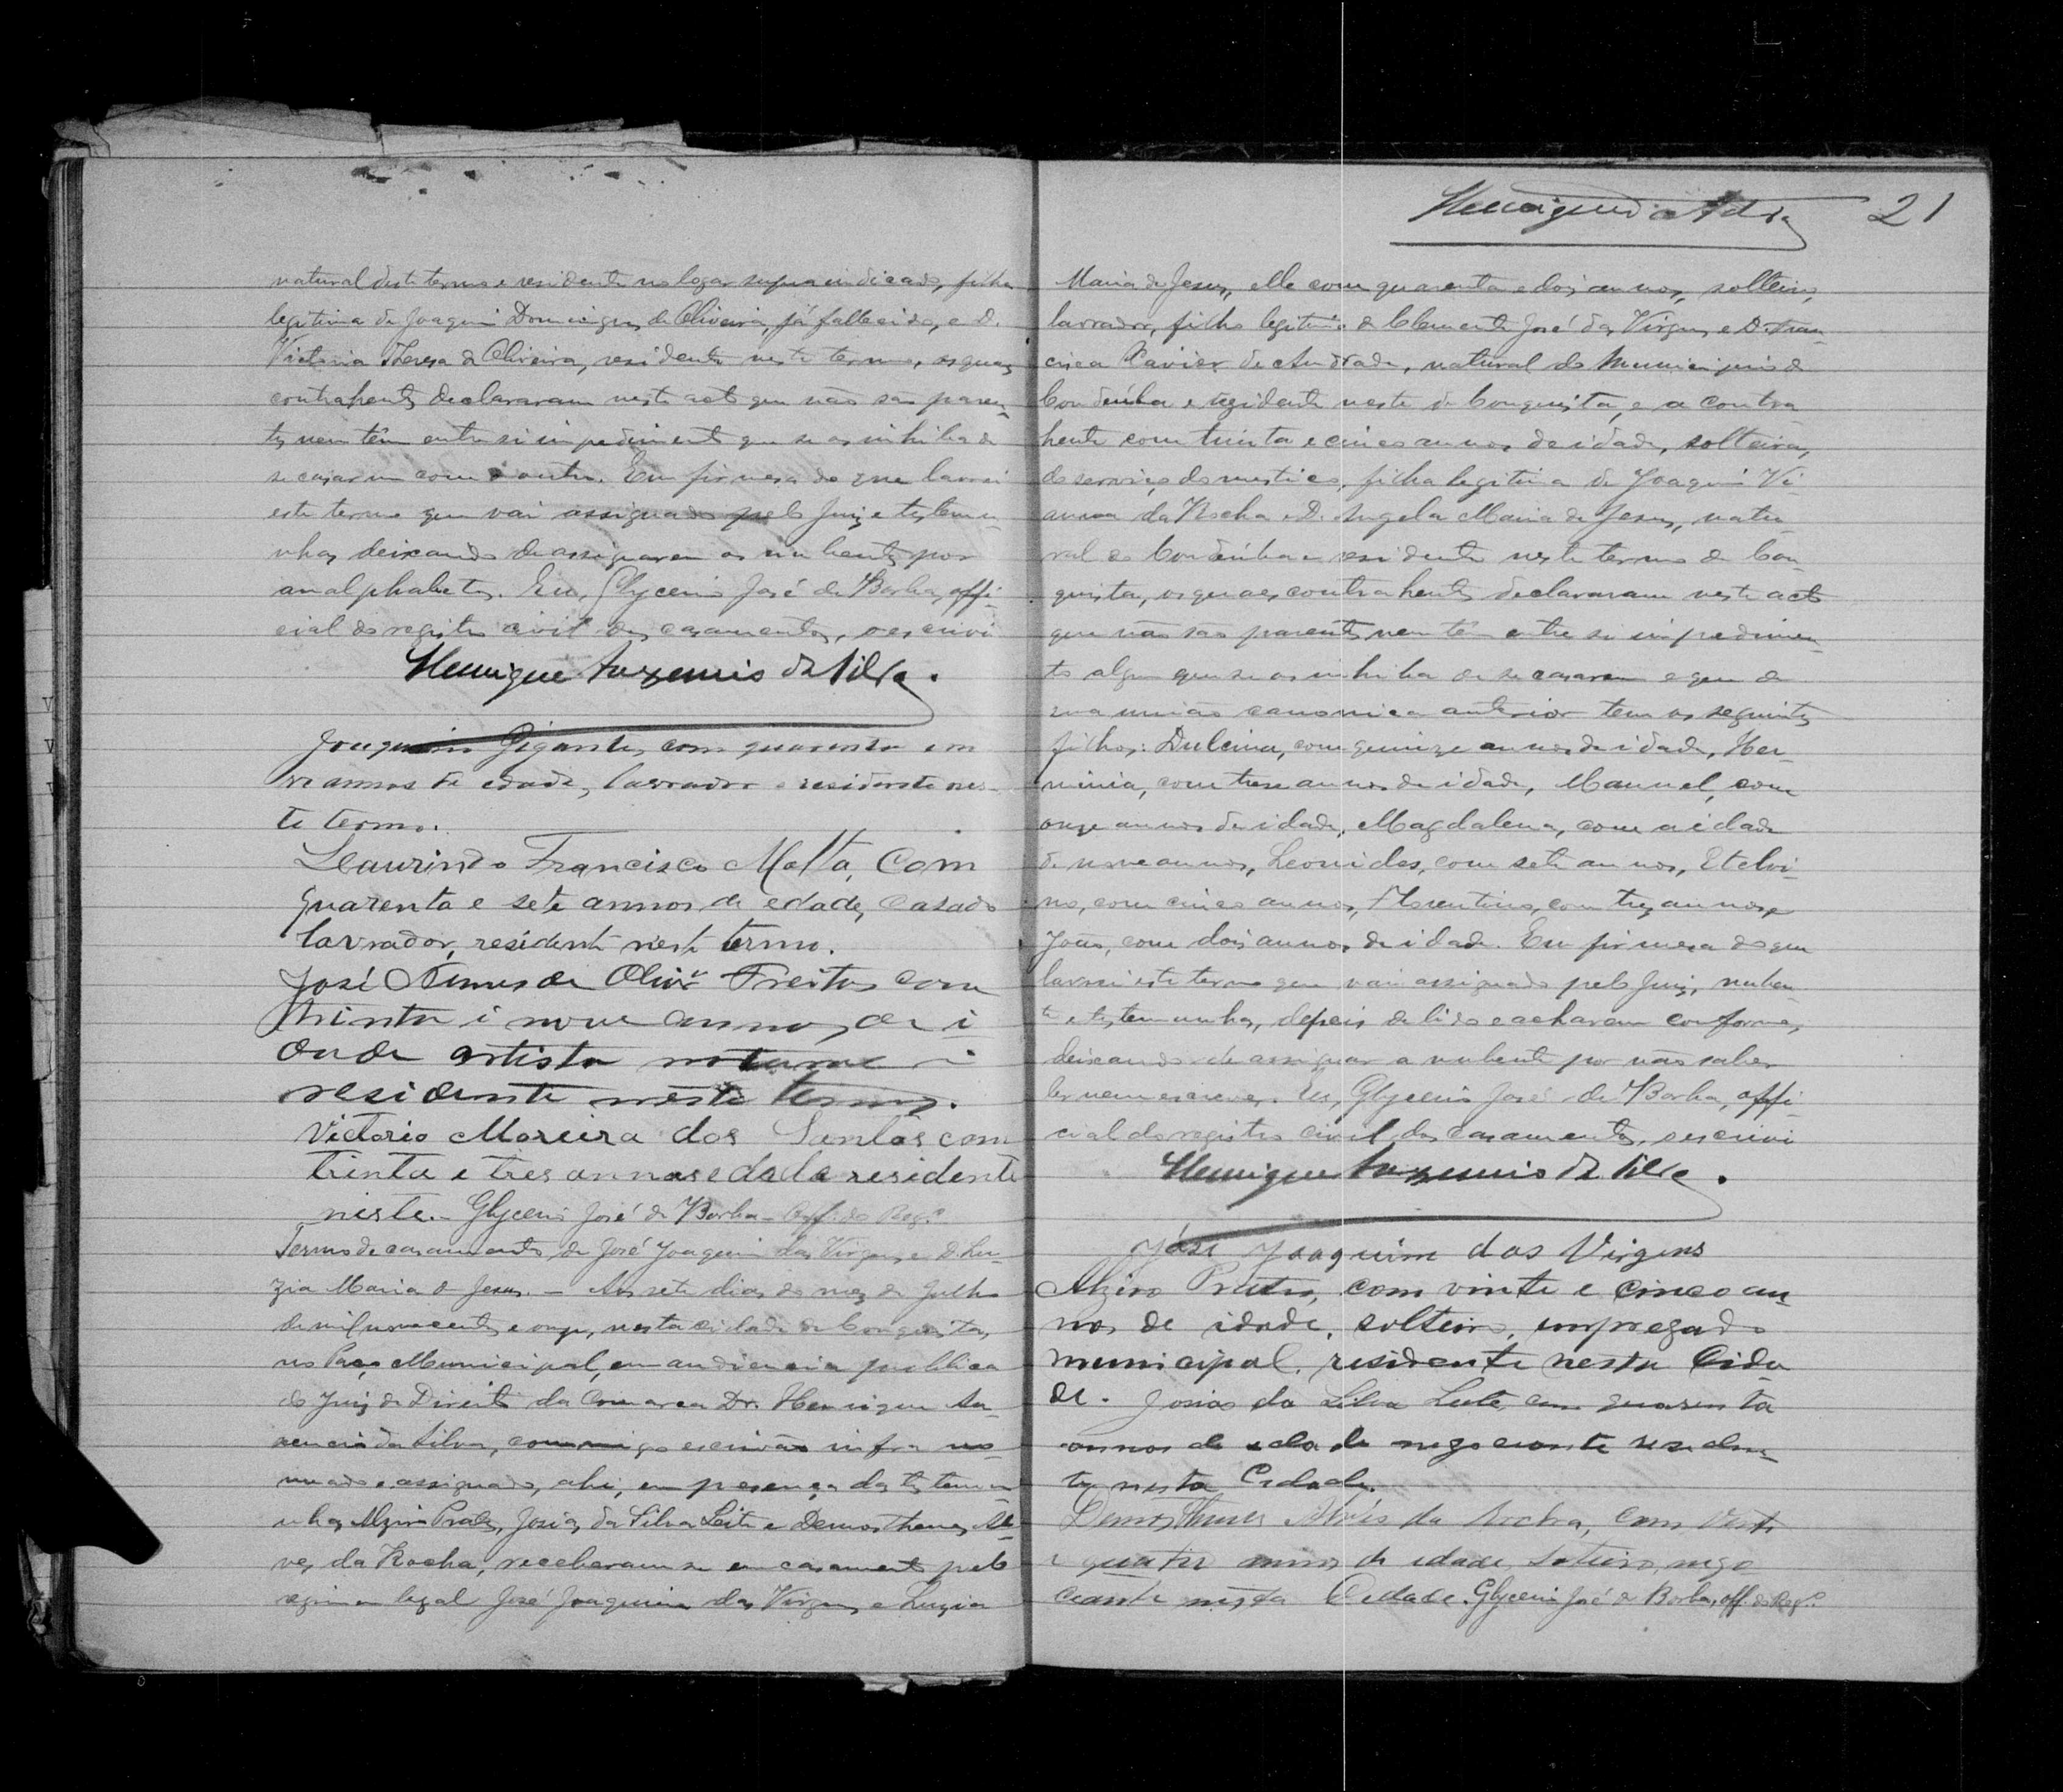 natural deste termo e residente no logar supra indicado, filha
legitima de Joaquim Domingues de Oliveira, já fallecido, e D.
Victoria Theresa de Oliveira, residente neste termo, os quaes
contrahentes declararam neste acto que não são paren-
tes nem têm entre si impedimento que se os inhiba de
se casar um com o outro. Em firmesa do que lavrei
este termo que vai assignado pelo Juiz e testemu-
nhas deixando de assignarem os nubentes por
analphabetos. Eu, Glycerio José de Borba, offi-
cial do registro civil dos casamentos, o escrivi
Henrique da Silva.
Joaquim Gigante, com quarenta e no
ve annos de edade, lavrador e residente nes-
te termo.
Laurindo Francisco Motta, Com
quarenta e sete annos de edade, Casado
lavrador, residente neste termo.
José Nunes de Olivrª Freitas com
trinta i nove annos de i
dade artista
residente neste termo.
Victorio Moreira dos Santos com
trinta e tres annos edade residente
neste. Glycerio José de Borba - Off. do Regº
Termo de casamento de José Joaquim das Virgens e D. Lu-
zia Maria de Jesus. - Aos sete dias do mez de Julho
de mil novecentos e onze, nesta cidade de Conquista,
no Paço Municipal, em audiencia publica
do Juiz de Direito da Comarca Dr. Henrique
da Silva, commigo escrivão infra no-
meado e assignado, ahi, em presença das testemu-
nhas Alziro Prates, Josias da Silva Leite e Demosthenes Al-
ves da Rocha, receberam-se em casamento pelo
regimen legal José Joaquim das Virgens e Luzia
21
Maria de Jesus, elle com quarenta e dois annos, solteiro,
lavrador, filho legitimo de Clemente José das Virgens e D. Fran-
cisca Xavier de Andrade, natural do Municipio de
Condeúba e residente neste de Conquista, e a contra
hente com trinta e cinco annos de idade, solteira,
do serviço domestico, filha legitima de Joaquim Vi-
anna da Rocha e D. Angela Maria de Jesus, natu-
ral de Condeúba e residente neste termo de Con-
quista, os quaes contrahentes declararam neste acto
que não são parentes nem têm entre si impedimen-
to algum que se os inhiba de se casarem e que de
sua união canonica anterior tem os seguintes
filhos: Dulcina, com quinze annos de idade, Her-
minia, com treze annos de idade, Manuel, com
onze annos de idade, Magdalena, com a idade
de nove annos, Leonidas, com sete annos, Etelvi-
no, com cinco annos, Florentino, com tres annos e
João, com dois annos de idade. Em firmesa do que
lavrei este termo que vai assignado pelo Juiz, nuben-
te e testemunhas, depois de lido e acharam conforme,
deixando de assignar a nubente por não saber
ler nem escrever. Eu, Glycerio José de Borba, offi-
cial do registro civil dos casamentos, o escrivi
Henrique da Silva.
José Joaquim das Virgens
Alziro Prates, com vinte e cinco an-
nos de idade, solteiro, empregado
municipal, residente nesta Cida-
de. Josias da Silva Leite, com quarenta
annos de edade negociante residen-
te nesta Cidade.
Demosthenes Alves da Rocha, com vinte
e quatro annos de edade solteiro, nego
ciante nesta Cidade. Glycerio José de Borba, off. do Regº